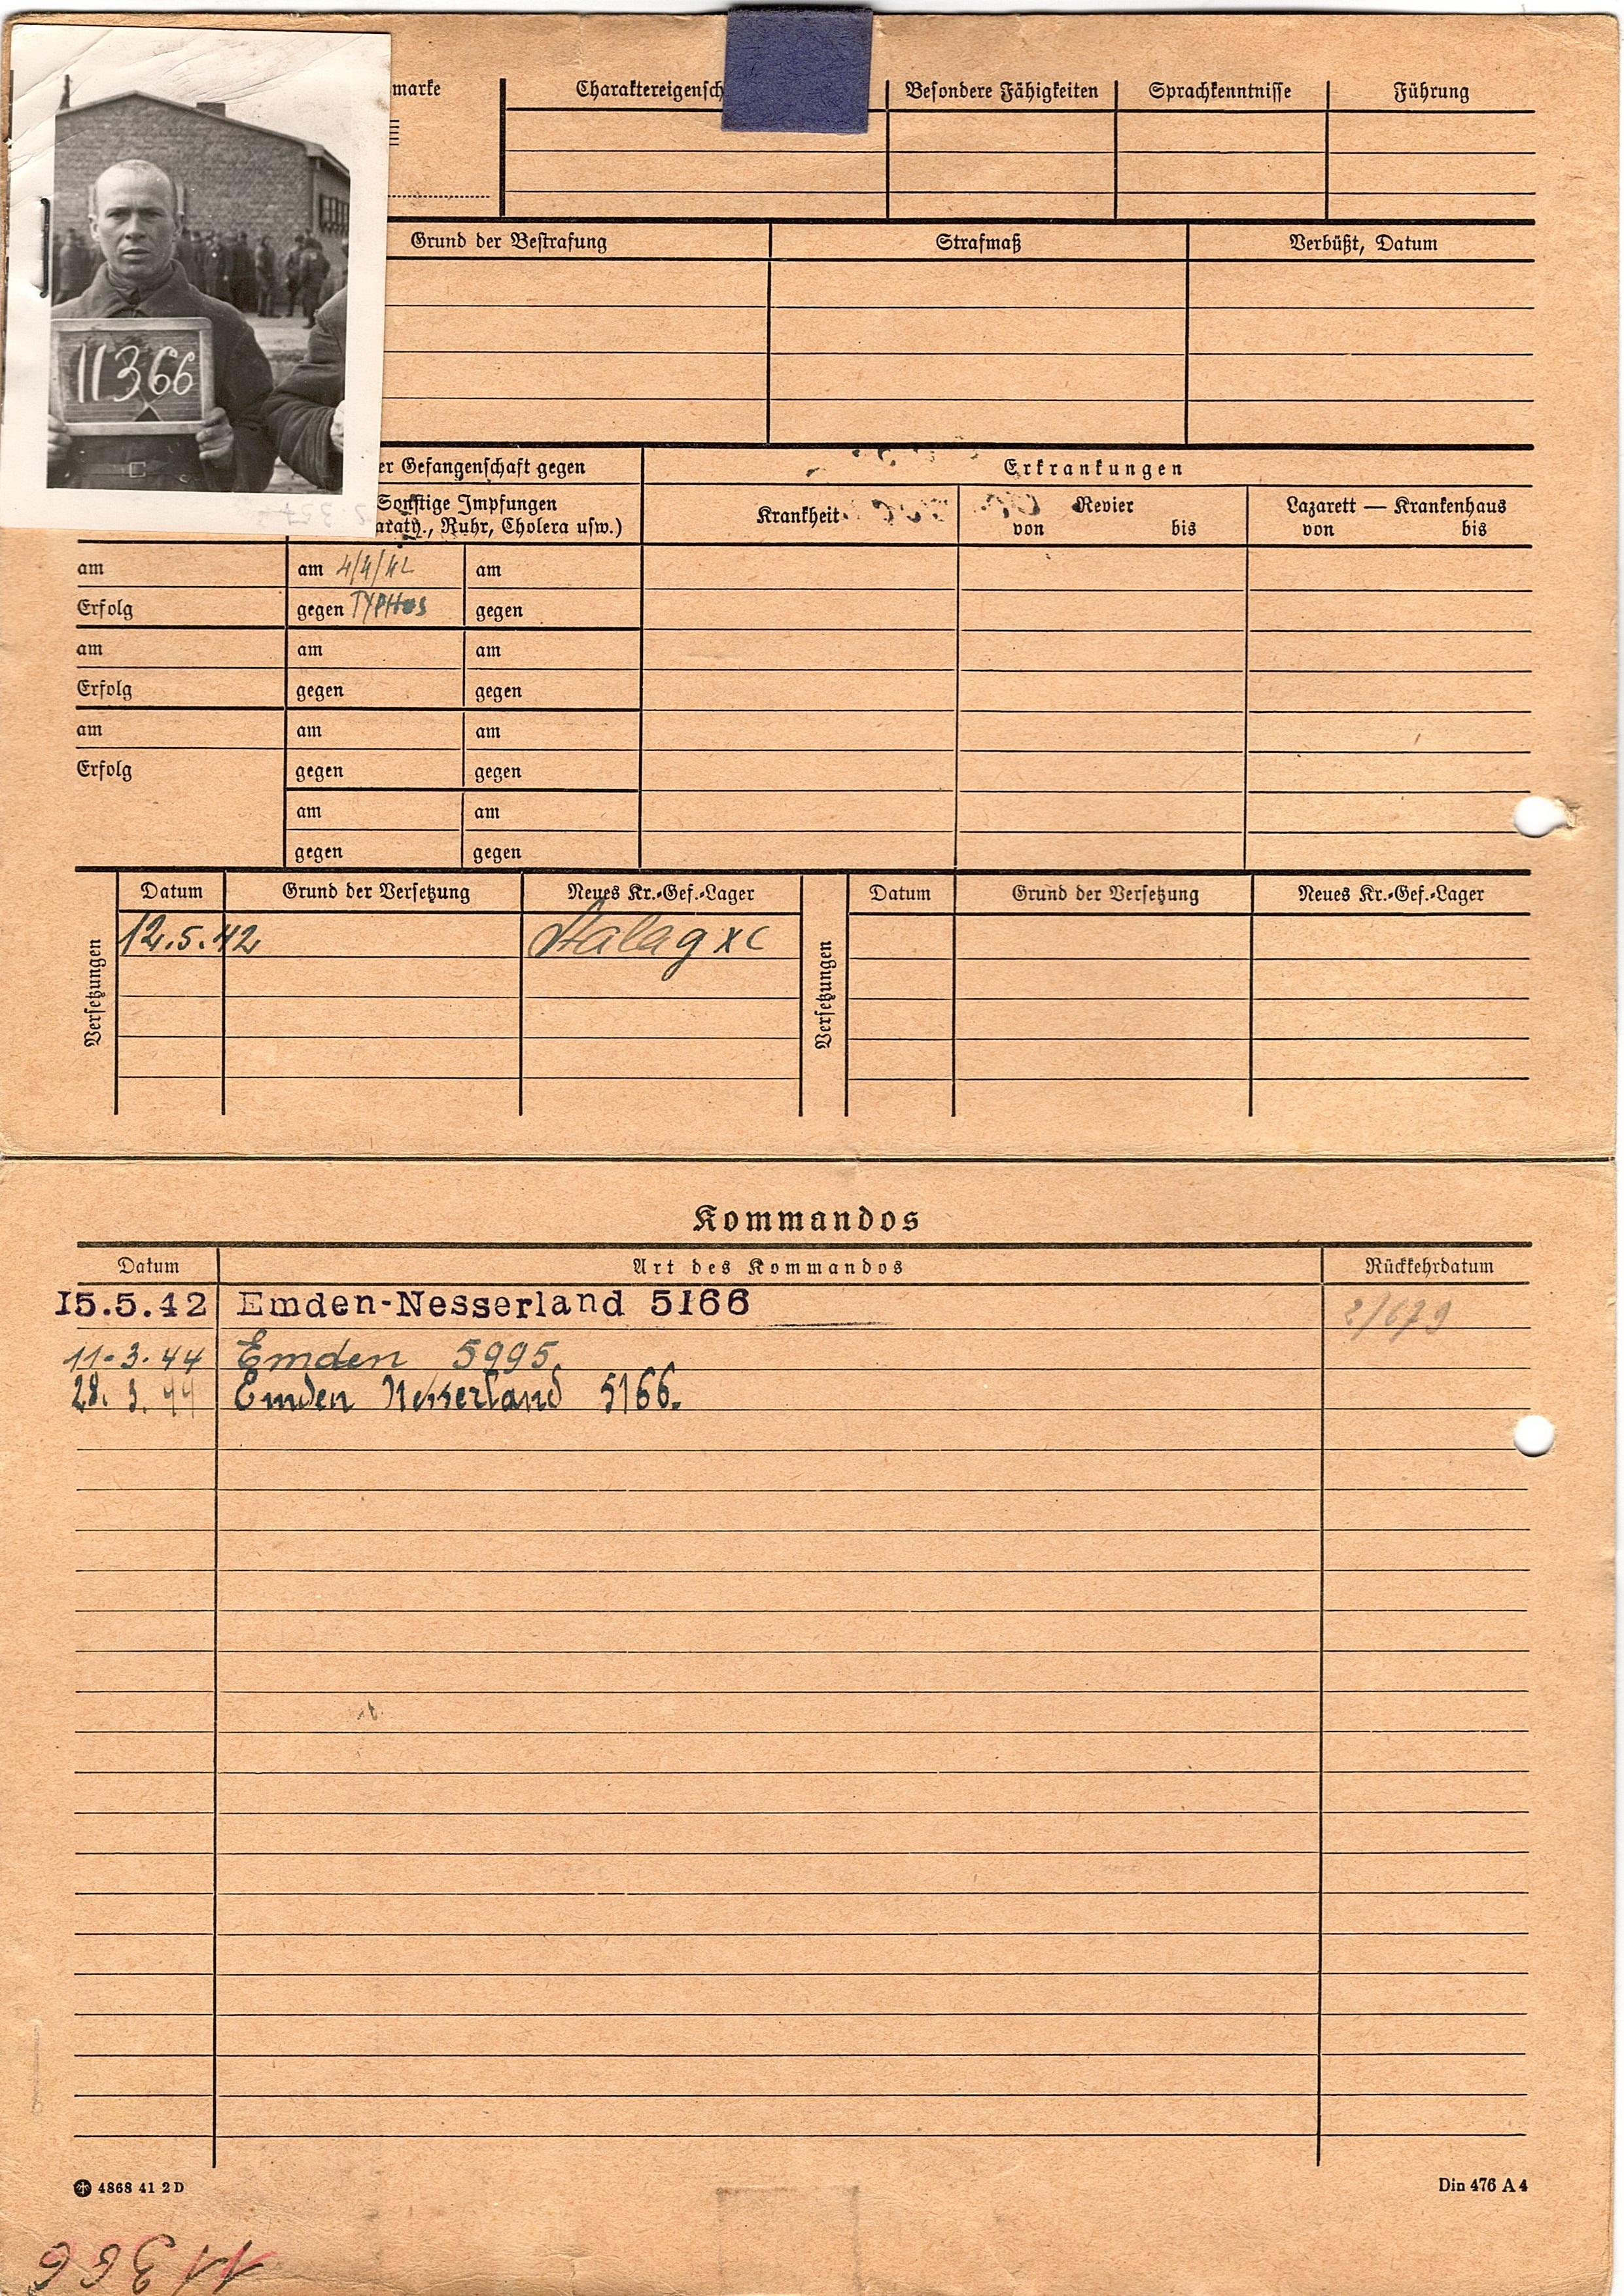 marke Charaktereigensch Besondere Fähigkeiten Sprachkenntnisse Führung
Grund der Bestrafung Strafmaß Verbüßt, Datum
11366
er Gefangenschaft gegen Erkrankungen
Sonstige Impfungen Krankheit Revier Lazarett — Krankenhaus
araty., Ruhr, Cholera usw.) von bis von bis
am am 4/4/42 am
Erfolg gegen TYPHUS gegen
am am am
Erfolg gegen gegen
am am am
Erfolg gegen gegen
am am
gegen gegen
Versetzungen Datum Grund der Versetzung Neues Kr.-Gef.-Lager Versetzungen Datum Grund der Versetzung Neues Kr.-Gef.-Lager
12.5.42 Stalag XC
Kommandos
Datum Art des Kommandos Rückkehrdatum
15.5.42 Emden-Nesserland 5166
11.3.44 Emden 5995
28.3.44 Emden Nesserland 5166.
4868 41 2 D Din 476 A 4
11366